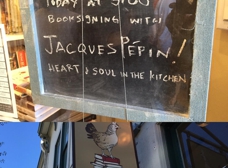 TODAY AT 5:00
BOOKSIGNING WITH
JACQUES PÉPIN!
HEART & SOUL IN THE KITCHEN